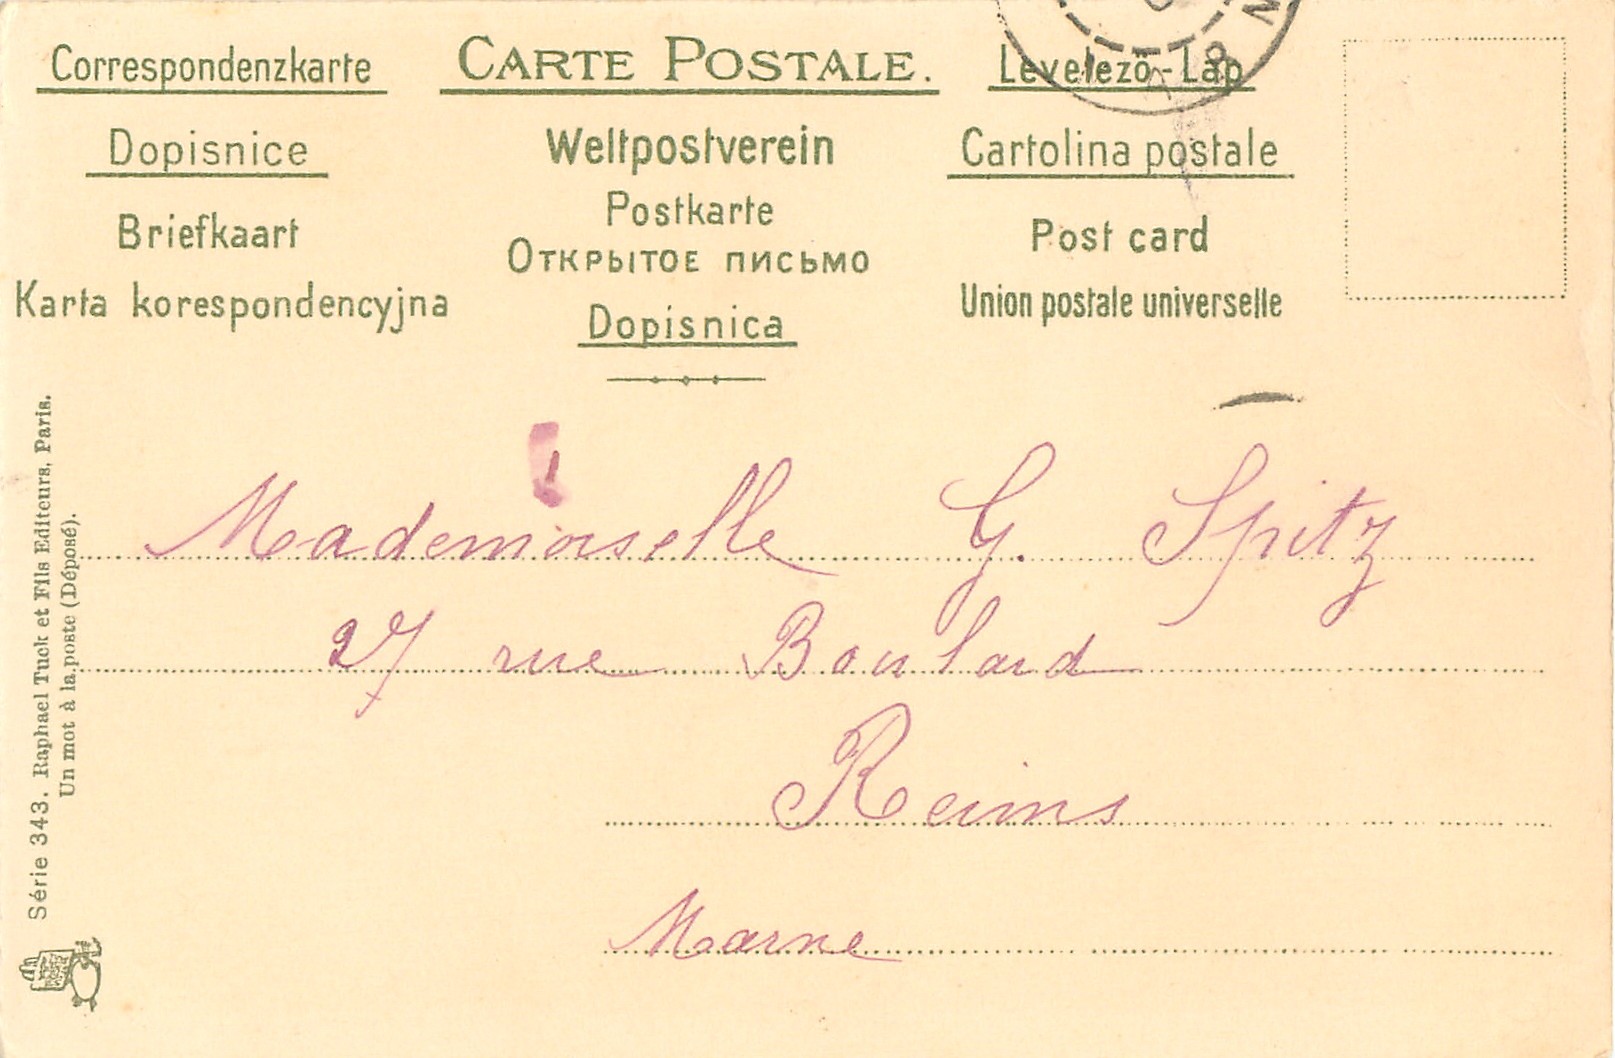 Correspondenzkarte
CARTE POSTALE.
Levelező-Lap
Dopisnice
Weltpostverein
Cartolina postale
Briefkaart
Postkarte
Post card
Открытое письмо
Karta korespondencyjna
Dopisnica
Union postale universelle
Série 343. Raphael Tuck et Fils Editeurs, Paris.
Un mot à la poste (Déposé).
Mademoiselle G. Spitz
27 rue Boulard
Reims
Marne